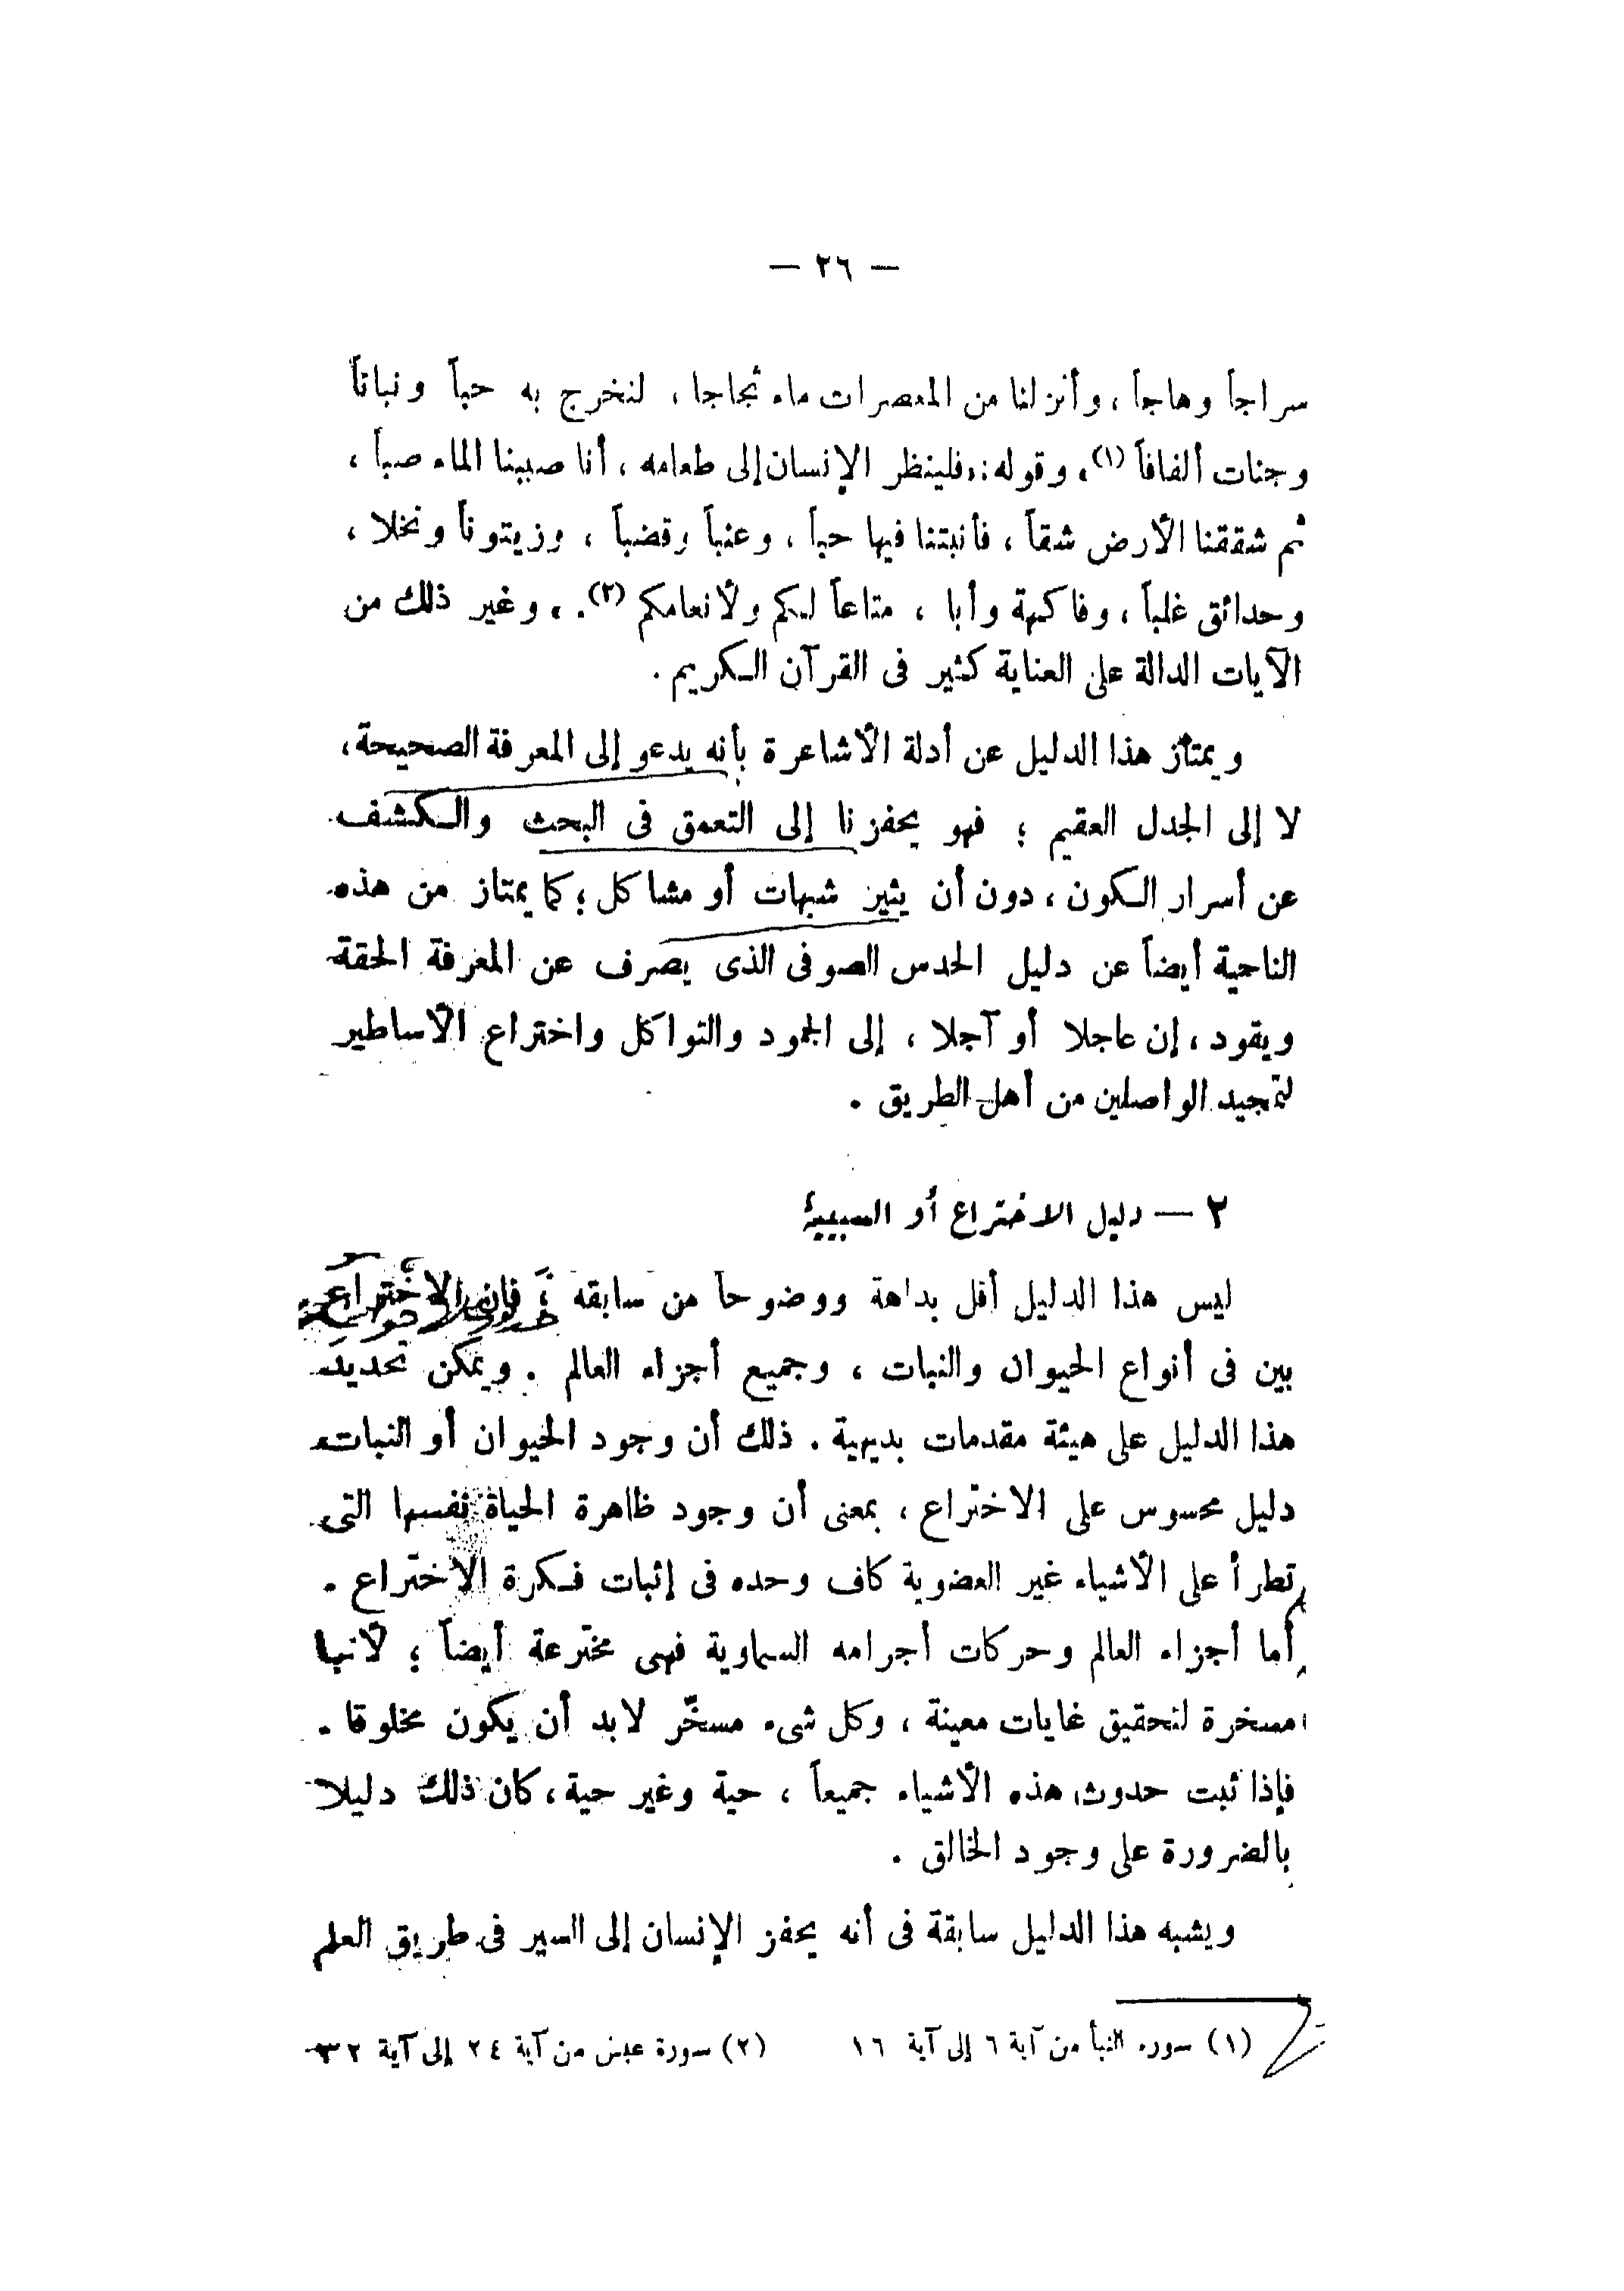 — ٢٦ —
سراجاً وهاجاً ، وأنزلنا من المعصرات ماء ثجاجا ، لنخرج به حباً ونباتاً
وجنات ألفافاً (١)، وقوله: «فلينظر الإنسان إلى طعامه ، أنا صببنا الماء صباً ،
ثم شققنا الأرض شقاً ، فأنبتنا فيها حباً ، وعنباً وقضباً ، وزيتوناً ونخلا ،
وحدائق غلباً ، وفاكهة وأبا ، متاعاً لكم ولأنعامكم (٢). » وغير ذلك من
الآيات الدالة على العناية كثير فى القرآن الكريم .
ويمتاز هذا الدليل عن أدلة الأشاعرة بأنه يدعو إلى المعرفة الصحيحة،
لا إلى الجدل العقيم ؛ فهو يحفزنا إلى التعمق فى البحث والكشف
عن أسرار الكون ، دون أن يثير شبهات أو مشاكل ؛ كما يمتاز من هذه
الناحية أيضاً عن دليل الحدس الصوفى الذى يصرف عن المعرفة الحقة
ويقود ، إن عاجلا أو آجلا ، إلى الجمود والتواكل واختراع الأساطير
لتمجيد الواصلين من أهل الطريق .
٢ — دليل الاختراع أو السببية
ليس هذا الدليل أقل بداهة ووضوحاً من سابقه ؛ فإن الاختراع
بين فى أنواع الحيوان والنبات ، وجميع أجزاء العالم . ويمكن تحديد
هذا الدليل على هيئة مقدمات بديهية . ذلك أن وجود الحيوان أو النبات
دليل محسوس على الاختراع ، بمعنى أن وجود ظاهرة الحياة نفسها التى
تطرأ على الأشياء غير العضوية كاف وحده فى إثبات فكرة الاختراع .
أما أجزاء العالم وحركات أجرامه السماوية فهى مخترعة أيضاً ؛ لأنها
مسخرة لتحقيق غايات معينة ، وكل شىء مسخَّر لابد أن يكون مخلوقا .
فإذا ثبت حدوث هذه الأشياء جميعاً ، حية وغير حية، كان ذلك دليلا
بالضرورة على وجود الخالق .
ويشبه هذا الدليل سابقة فى أنه يحفز الإنسان إلى السير فى طريق العلم
(١) سورة النبأ من آية ٦ إلى آية ١٦ (٢) سورة عبس من آية ٢٤ إلى آية ٣٢